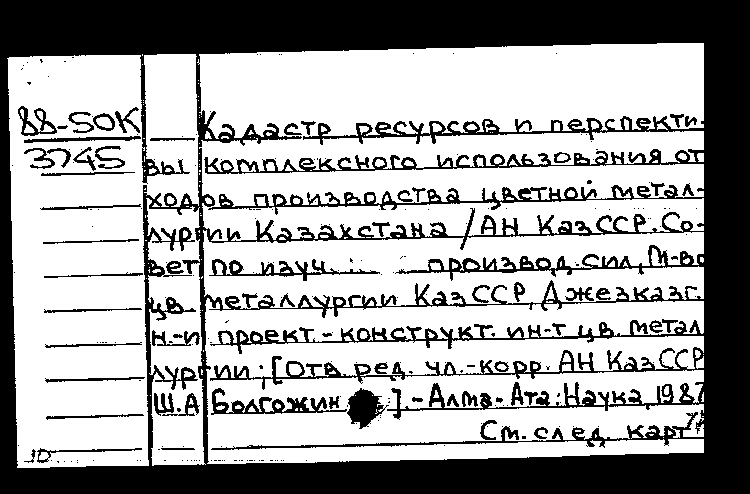 88-50К
3745
Кадастр ресурсов и перспекти-
вы комплексного использования от
ходов производства цветной метал-
лургии Казахстана / АН КазССР. Со-
вет по изуч. производ. сил, М-во
цв. металлургии КазССР, Джезказг.
н.-и проект.-конструкт. ин-т цв. метал
лургии; [Отв. ред. чл.-корр. АН КазССР
Ш.А Болгожин ]. - Алма-Ата: Наука, 1987
См. след. карт
10